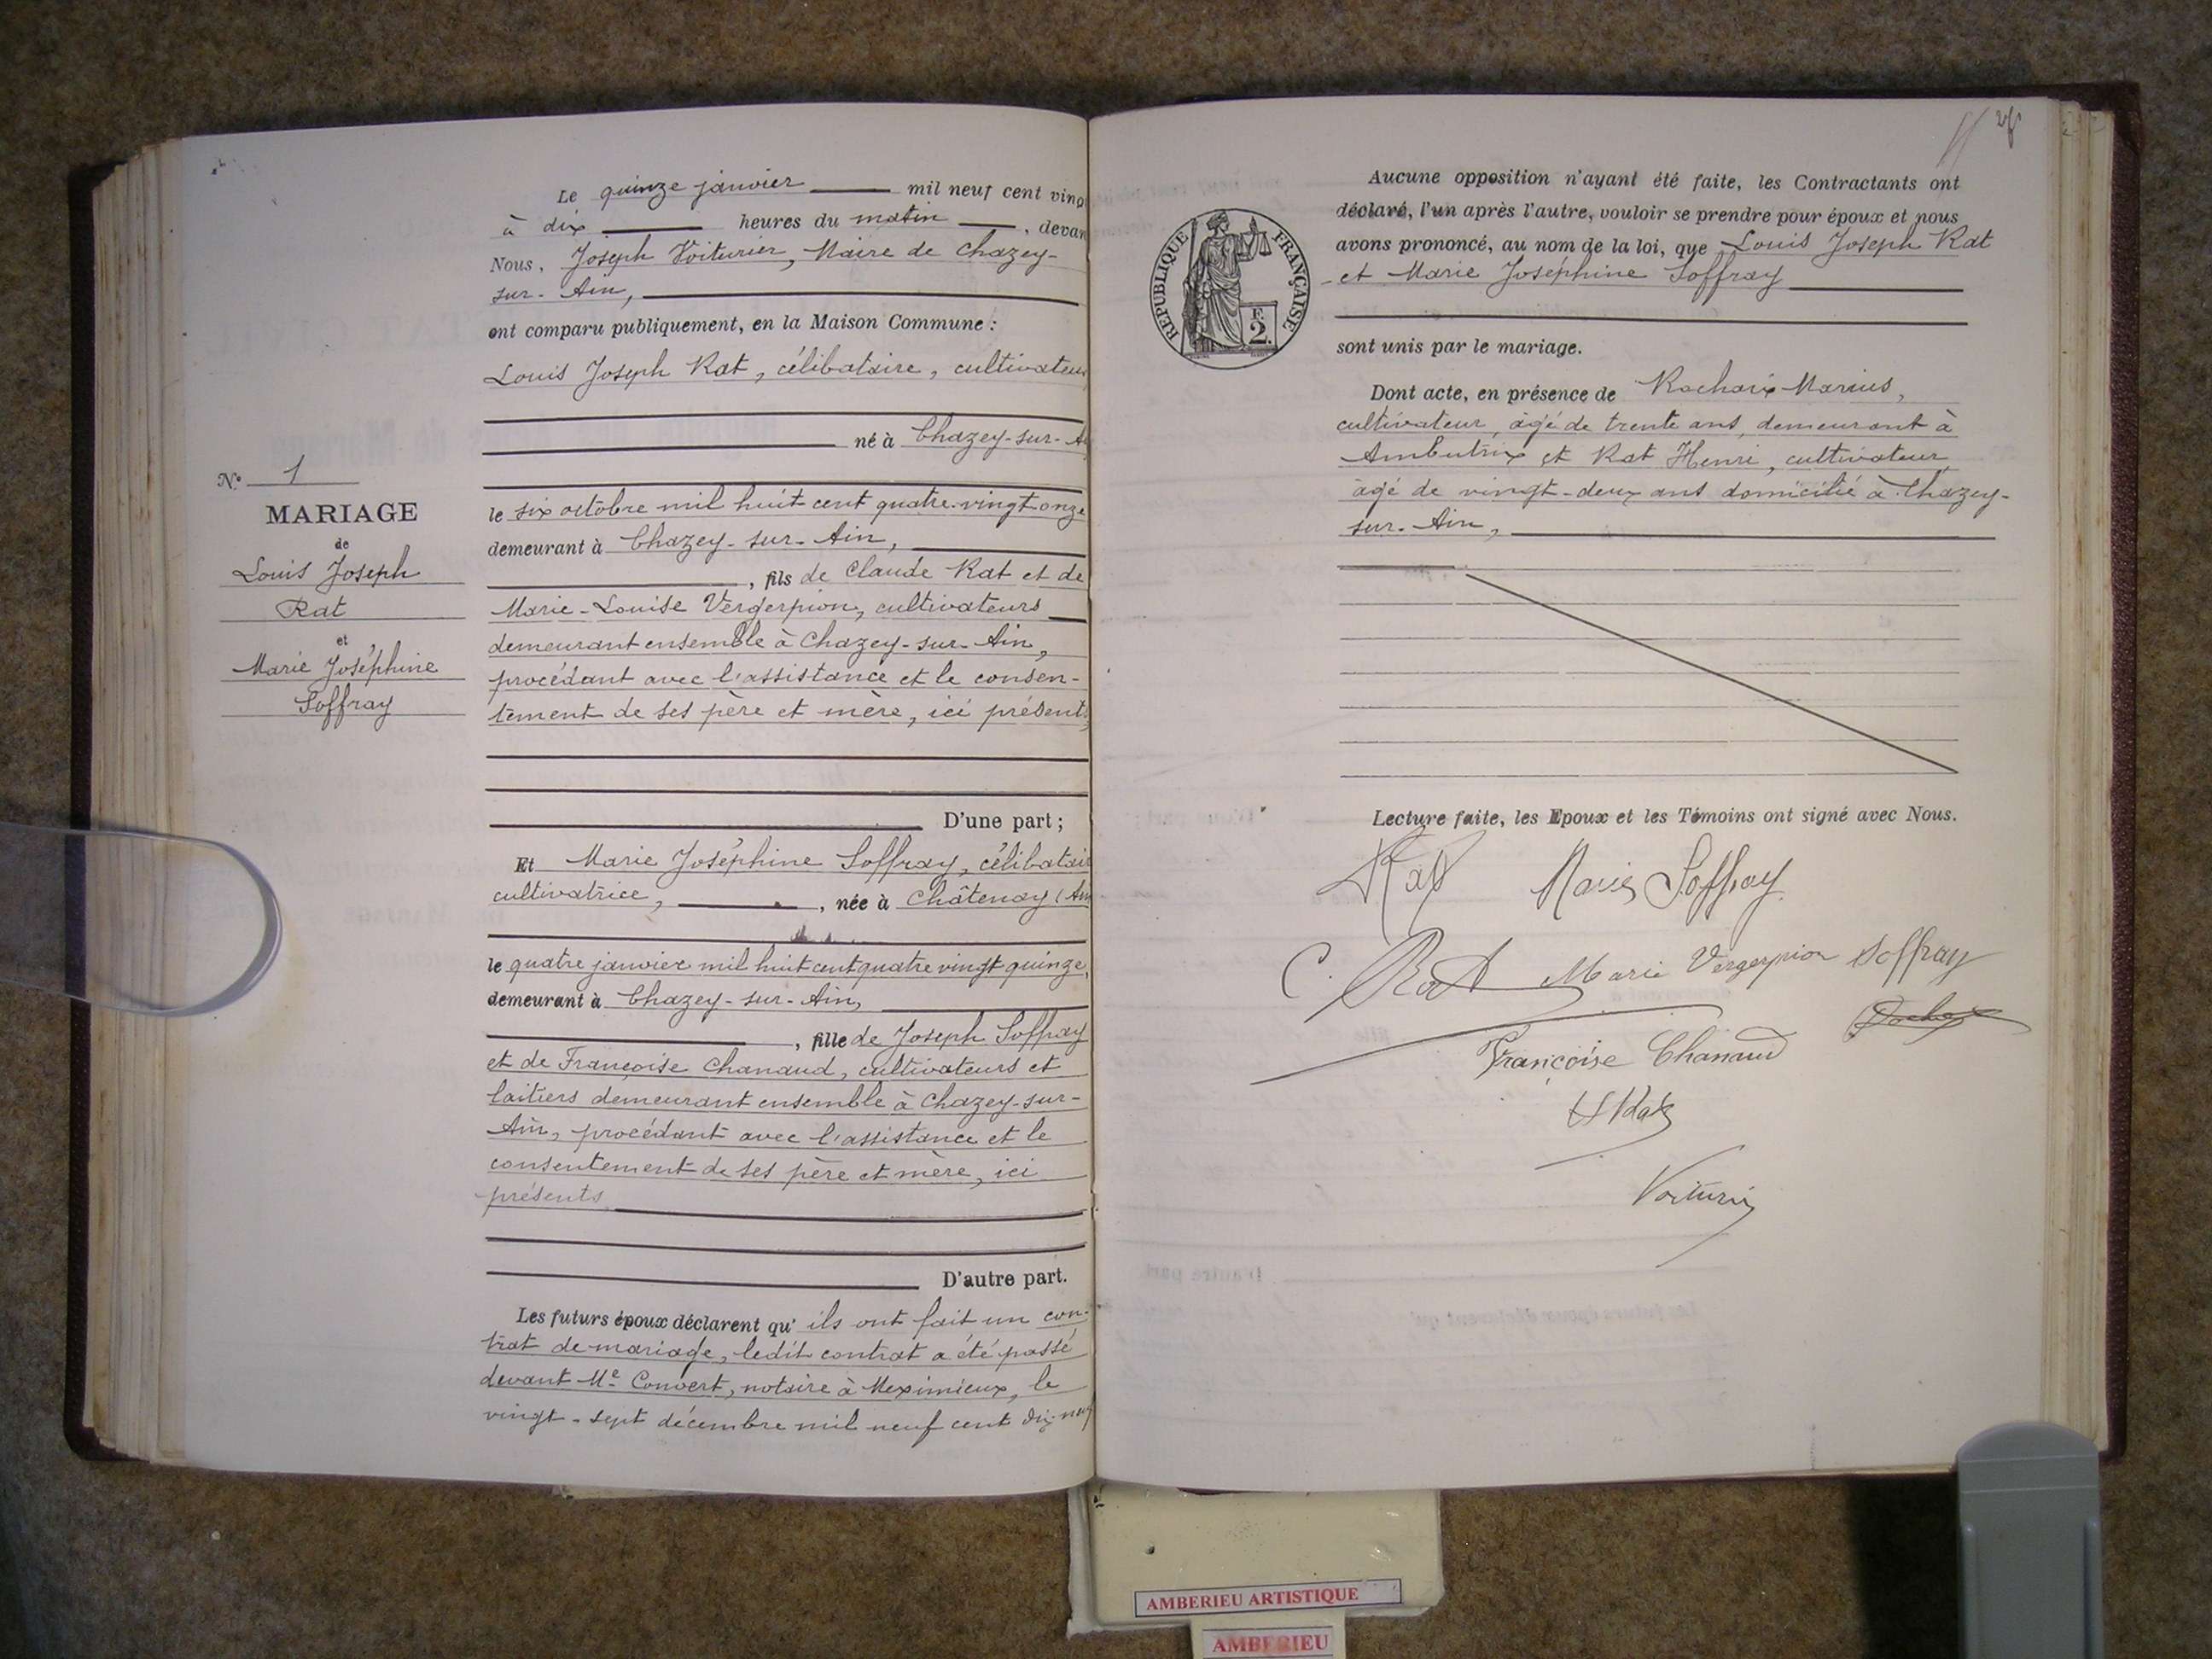 Le quinze janvier mil neuf cent vingt
à dix heures du matin, devan
Nous, Joseph Voiturier, Maire de Chazey-
sur-Ain,
ont comparu publiquement, en la Maison Commune :
Louis Joseph Rat, célibataire, cultivateur
né à Chazey-sur-A
le six octobre mil huit cent quatre-vingt onze
demeurant à Chazey-sur-Ain,
, fils de Claude Rat et de
Marie-Louise Vergerpion, cultivateurs
demeurant ensemble à Chazey-sur-Ain,
procédant avec l'assistance et le consen-
tement de ses père et mère, ici présents,
D'une part ;
Et Marie Joséphine Soffray, célibatair
cultivatrice, , née à Châtenay (Ain
le quatre janvier mil huit cent quatre vingt quinze,
demeurant à Chazey-sur-Ain,
, fille de Joseph Soffray
et de Françoise Chanaud, cultivateurs et
laitiers demeurant ensemble à Chazey-sur-
Ain, procédant avec l'assistance et le
consentement de ses père et mère, ici
présents
D'autre part.
Les futurs époux déclarent qu' ils ont fait un con-
trat de mariage, ledit contrat a été passé
devant Me Convert, notaire à Meximieux, le
vingt-sept décembre mil neuf cent dix-neuf
N° 1
MARIAGE
de
Louis Joseph
Rat
et
Marie Joséphine
Soffray
Aucune opposition n'ayant été faite, les Contractants ont
déclaré, l'un après l'autre, vouloir se prendre pour époux et nous
avons prononcé, au nom de la loi, que Louis Joseph Rat
et Marie Joséphine Soffray
sont unis par le mariage.
REPUBLIQUE FRANÇAISE
F.
2.
Dont acte, en présence de Rochaix Marius,
cultivateur, âgé de trente ans, demeurant à
Ambutrix et Rat Henri, cultivateur
âgé de vingt-deux ans domicilié à Chazey-
sur-Ain,
Lecture faite, les Epoux et les Témoins ont signé avec Nous.
Rat Marie Soffray
C. Rat Marie Vergerpion Soffray
Françoise Chanaud
H Rat
Voiturier
AMBERIEU ARTISTIQUE
AMBERIEU